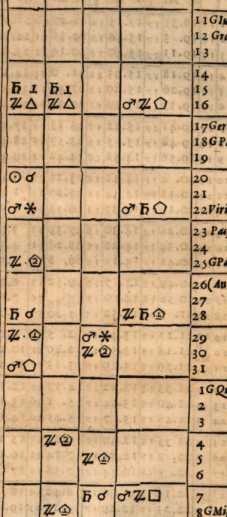 11 Glu
12 Gra
13
14
♄ ⊥ ♄ ⊥ 15
♃ △ ♃ △ ♂ ♃ ⬠ 16
17 Ger
18 GPa
19
☉ ☌ 20
21
♂ ⚹ ♂ ♄ ⬠ 22 Viri
23
24
♃ · ② 25 GPa
26 (Au
27
♄ ☌ ♃ ♄ ① 28
♃ · ① ♂ ⚹ 29
♃ ② 30
♂ ⬠ 31
1 GQu
2
3
♃ ② 4
♃ ① 5
6
♄ ☌ ♂ ♃ □ 7
♃ ① 8 GMi